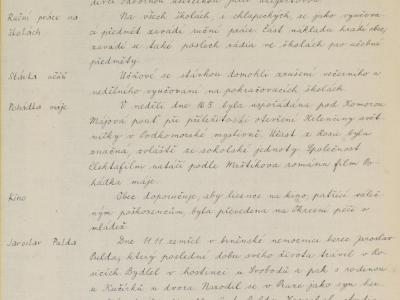 Ruční práce na
školách
Na všech školách, i chlapeckých, se jako vyučo-
vací předmět zavádí ruční práce. Část nákladu hradí obec,
zavádí se také poslech rádia ve školách pro učební
předměty.
Stávka učňů
Učňové se stávkou domohli zrušení večerního a
nedělního vyučování na pokračovacích školách.
Pohádka máje
V neděli dne 16.5. byla uspořádána pod Komorou
Májová pouť při příležitosti otevření Heleniny svět-
ničky v vodkomorské myslivně. Účast z Rosic byla
značná, zvláště ze sokolské jednoty. Společnost
Elektafilm natáčí podle Mrštíkova románu film Po-
hádka máje.
Kino
Obec doporučuje, aby licence na kino, patřící váleč-
ným poškozencům, byla převedena na Okresní péči o
mládež.
Jaroslav Pulda
Dne 11.11. zemřel v brněnské nemocnici herec Jaroslav
Pulda, který poslední dobu svého života trávil v Ro-
sicích. Bydlel v hostinci u Svobodů a pak s rodinou
u Kučírků u dvora. Narodil se v Praze jako syn her-